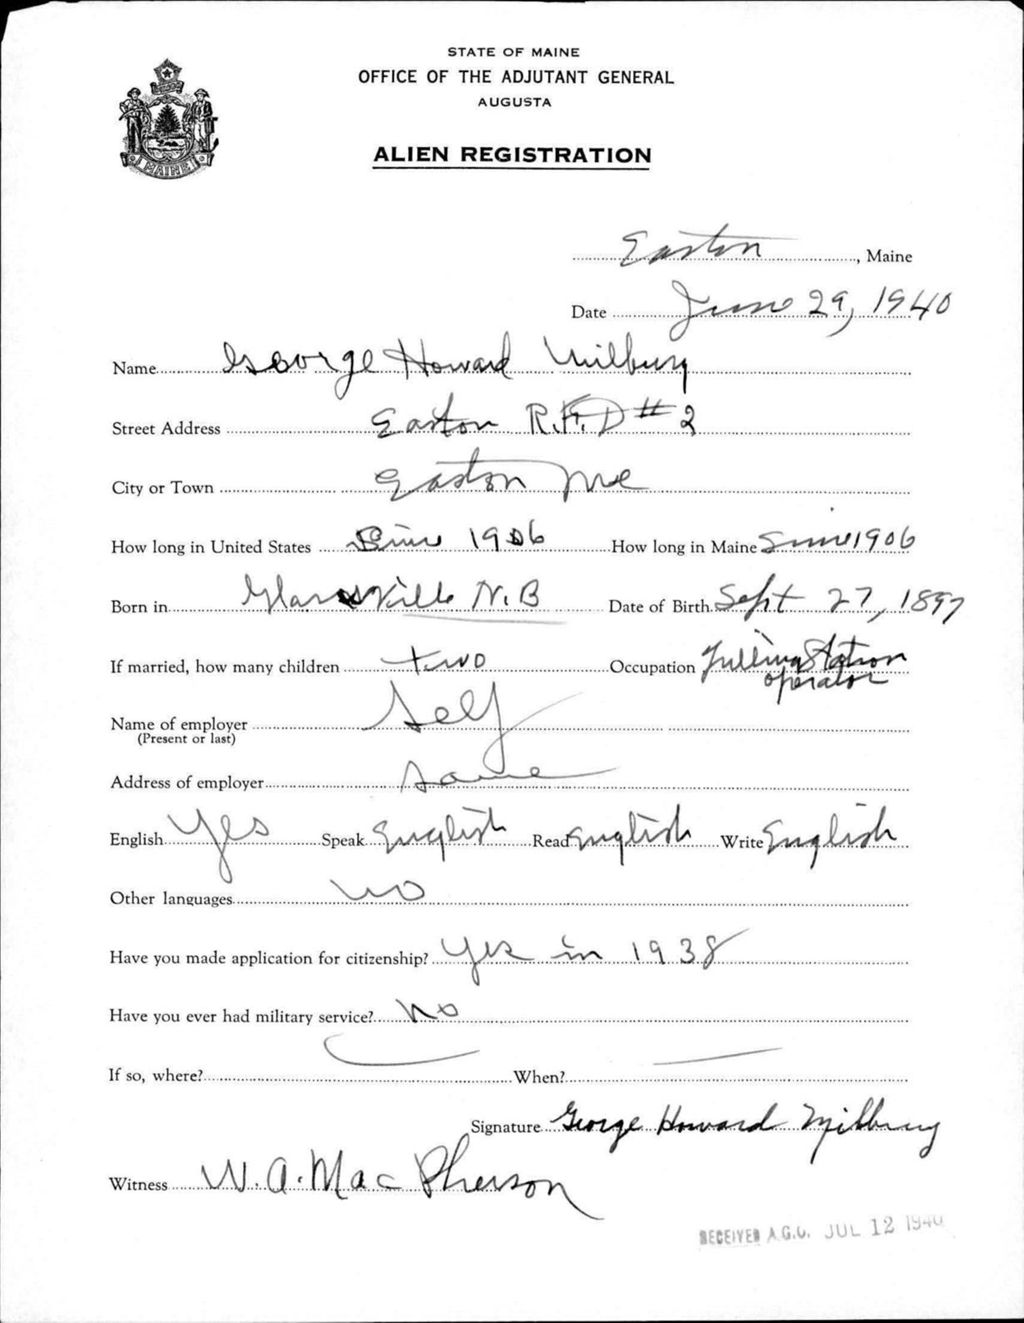 STATE OF MAINE
OFFICE OF THE ADJUTANT GENERAL
AUGUSTA
ALIEN REGISTRATION
MAINE
Easton, Maine
Date June 29, 1940
Name George Howard Milbury
Street Address Easton R.F.D #2
City or Town Easton Me
How long in United States Since 1906 How long in Maine Since 1906
Born in N.B Date of Birth Sept 27, 1897
If married, how many children two Occupation Filling Station
operator
Name of employer Self
(Present or last)
Address of employer Same
English Yes Speak English Read English Write English
Other languages no
Have you made application for citizenship? Yes in 1938
Have you ever had military service? no
If so, where? When?
Signature George Howard Milbury
Witness W. A. MacPherson
RECEIVED A.G.O. JUL 12 1940